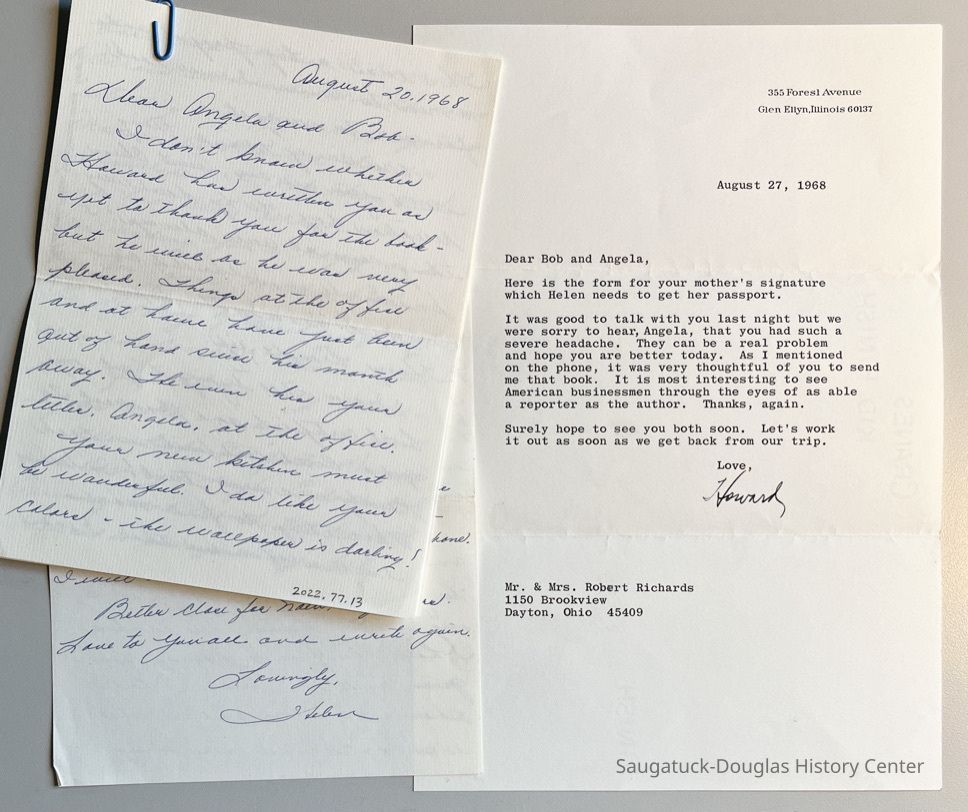 August 20, 1968
Dear Angela and Bob -
I don't know whether
Howard has written you as
yet to thank you for the book -
but he will as he was very
pleased. Things at the office
and at home have just been
out of hand since his month
away. He even has your
letter, Angela, at the office.
Your new kitchen must
be wonderful. I do like your
colors - the wallpaper is darling!
2022.77.13
hone.
I will
Better close for now.
Love to you all and write again.
Lovingly,
Helen
355 Forest Avenue
Glen Ellyn, Illinois 60137
August 27, 1968
Dear Bob and Angela,
Here is the form for your mother's signature
which Helen needs to get her passport.
It was good to talk with you last night but we
were sorry to hear, Angela, that you had such a
severe headache. They can be a real problem
and hope you are better today. As I mentioned
on the phone, it was very thoughtful of you to send
me that book. It is most interesting to see
American businessmen through the eyes of as able
a reporter as the author. Thanks, again.
Surely hope to see you both soon. Let's work
it out as soon as we get back from our trip.
Love,
Howard
Mr. & Mrs. Robert Richards
1150 Brookview
Dayton, Ohio 45409
Saugatuck-Douglas History Center